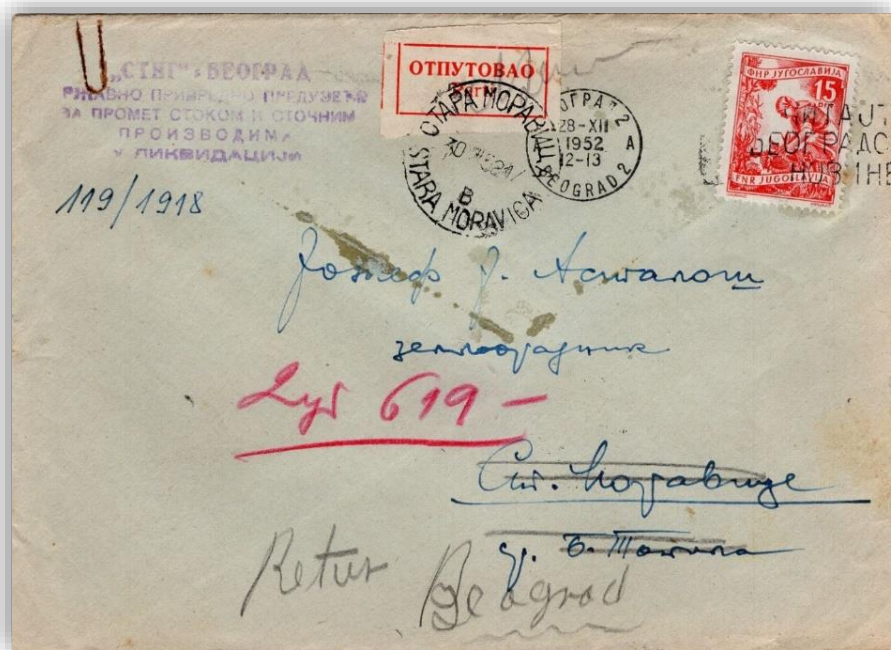 „СТИГ“ БЕОГРАД
РЖАВНО ПРИВРЕДНО ПРЕДУЗЕЋЕ
ЗА ПРОМЕТ СТОКОМ И СТОЧНИМ
ПРОИЗВОДИМА
У ЛИКВИДАЦИЈИ
119/1918
ОТПУТОВАО
Parti
СТАРА МОРАВИЦА
30
B
STARA MORAVICA
ОГРАД 2
28-XII
1952
12-13
A
BEOGRAD 2
ФНР ЈУГОСЛАВИЈА
15
FNR JUGOSLAVIJA
ЧИТАЈТ
БЕОГРАДС
НОВИНЕ
Јожеф Ј. Асталош
земљорадник
619 –
Ст. Моравице
ср. Б. Топола
Retur Beograd